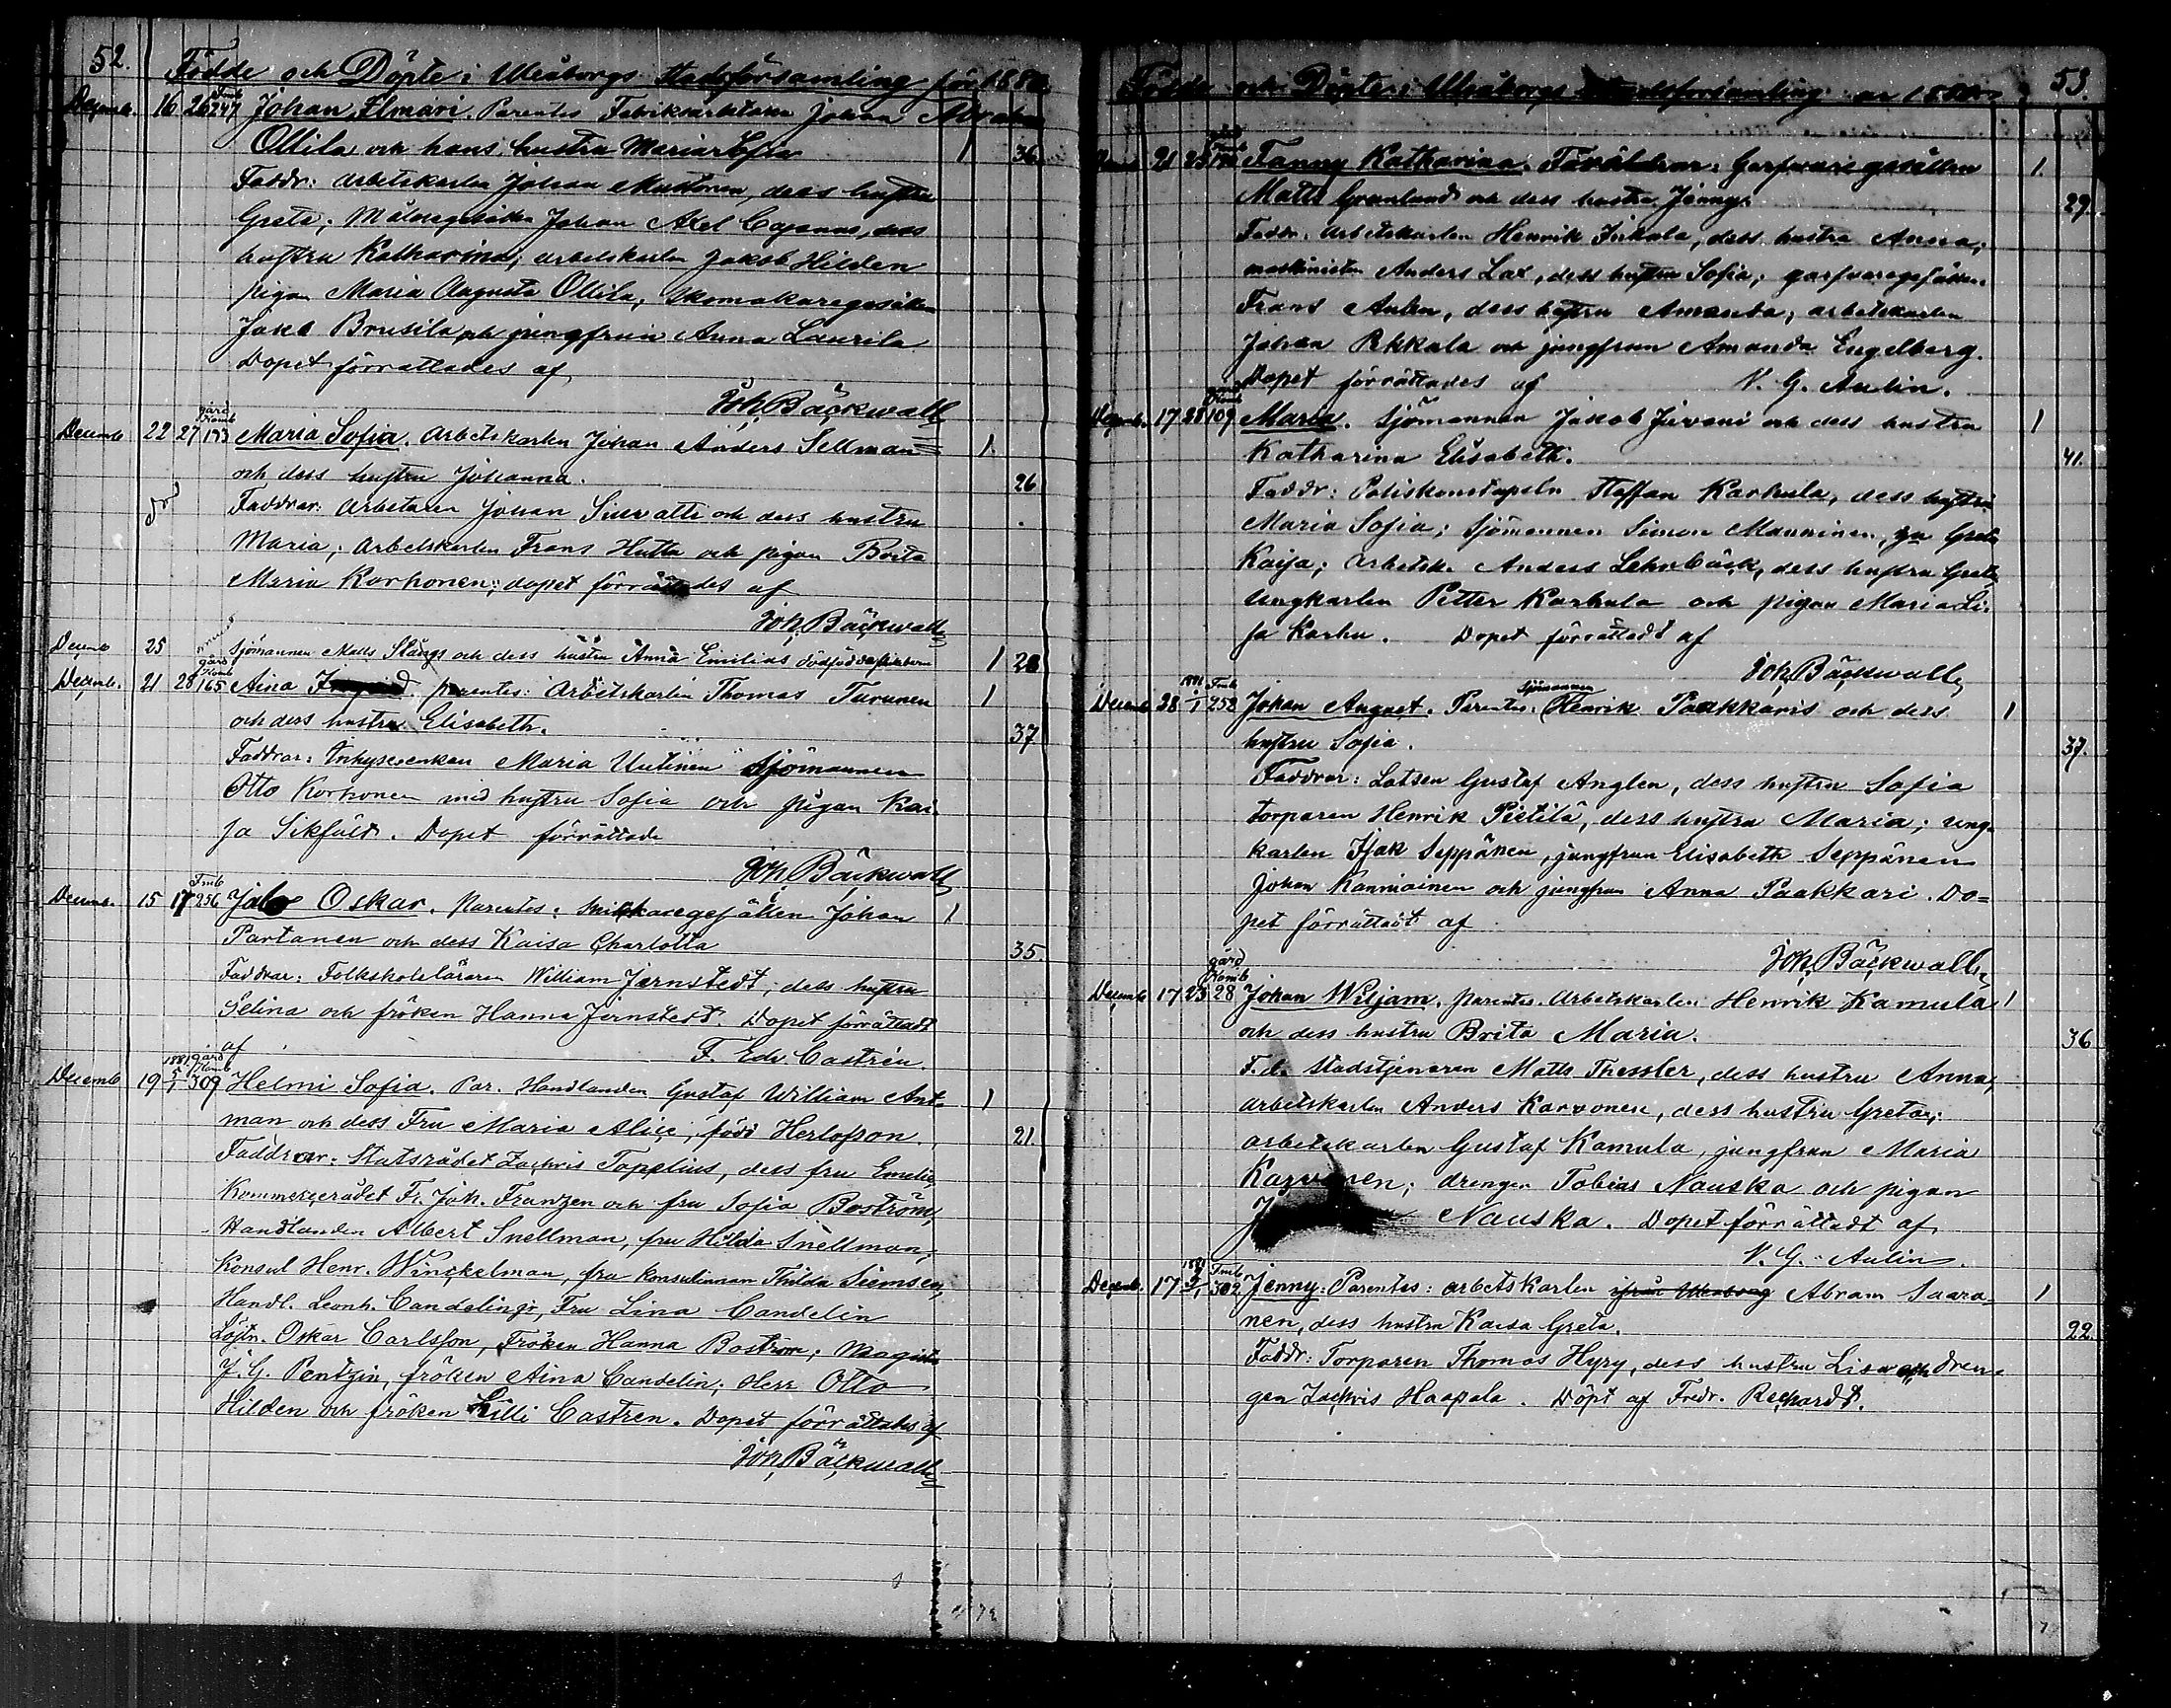 52.
Födde och Döpte i Uleåborgs stadsförsamling för 1880
Decemb. 16 26 Fmb 247 Johan Ilmari. Parentes Fabriksarbetaren Johan Abraham
Ollila och hans hustru Maria Sofia 1 36
Faddr: arbetskarlen Johan Mustonen, dess hustru
Greta; Målaregesällen Johan Axel Cajanus, dess
hustru Katharina; arbetskarlen Jakob Hilden
pigan Maria Augusta Ollila, skomakaregesällen
Jakob Brusila och jungfrun Anna Laurila
Dopet förrättades af
Joh. Bäckwall
Decemb 22 27 gård Komb 193 Maria Sofia. Arbetskarlen Johan Anders Sellman 1.
och dess hustru Johanna. 26
Faddrar: Arbetaren Johan Siuvatti och dess hustru
Maria; Arbetskarlen Frans Hutta och pigan Brita
Maria Korhonen; dopet förrättades af
Joh. Bäckwall
Decemb 25 Sjömannen Matts Stångs och dess hustru Anna Emilias dödfödda 1 28
Decemb. 21 28 gård Komb 165 Aina Parentes: Arbetskarlen Thomas Turunen 1
och dess hustru Elisabeth. 37
Faddrar: Inhysesenkan Maria Uutinen Sjömannen
Otto Korhonen med hustru Sofia och pigan Kai-
sa Sikfält. Dopet förrättade
Joh. Bäckwall
Decemb. 15 17 Fmb 256 Jalo Oskar. Parentes: Snickaregesällen Johan 1
Partanen och dess Kaisa Charlotta 35
Faddrar: Folkskoleläraren William Jernstedt, dess hustru
Selina och fröken Hanna Jernstedt. Dopet förrättadt
af F. Edv. Castrén.
Decemb 19 1881 5/1 gård Komb 309 Helmi Sofia. Par. Handlanden Gustaf William Ant- 1
man och dess Fru Maria Alice, född Herlofson. 21
Faddrar: Statsrådet Zachris Topelius, dess fru Emelie,
Kommerserådet Fr. Joh. Franzen och fru Sofia Boström,
Handlanden Albert Snellman, fru Hilda Snellman;
Konsul Henr. Winckelman, fru konsulinnan Thilda Siemsen,
Handl. Leonh. Candelin, Fru Lina Candelin
Löjtn. Oskar Carlsson, Fröken Hanna Boström; Magister
J. G. Pentzin, fröken Aina Candelin; Herr Otto
Hilden och fröken Lilli Castren. Dopet förrättades af
Joh. Bäckwall
53.
Födde och Döpte i Uleåborgs Stadsförsamling år 1880
21 Fanny Katharina. Föräldrar: Garfvaregesällen 1.
Matts Granlund och dess hustru Jenny. 29.
Faddr. Arbetskarlen Henrik Jukola, dess hustru Anna;
maskinisten Anders Lax, dess hustru Sofia; garfvaregesällen
Frans Aulin, dess hustru Amanda, arbetskarlen
Johan Pekkala och jungfrun Amanda Engelberg.
Dopet förrättades af V. G. Aulin.
Decemb. 17 28 gård Komb 109 Maria. Sjömannen Jakob Juvani och dess hustru 1
Katharina Elisabeth. 41.
Faddr: Poliskonstapeln Staffan Karhula, dess hustru
Maria Sofia; Sjömannen Simon Manninen, Greta
Kaisa; Arbetsk. Anders Lehnbäck, dess hustru Greta
ungkarlen Petter Karhula och pigan Maria Li-
sa Karhu. Dopet förrättadt af
Joh. Bäckwall
Decemb 28 1881 1/1 Fmb 258 Johan August. Parentes: Sjömannen Henrik Paakkaris och dess 1
hustru Sofia. 37.
Faddrar: Lotsen Gustaf Anglen, dess hustru Sofia
torparen Henrik Pietilä, dess hustru Maria; ung-
karlen Isak Seppänen, jungfrun Elisabeth Seppänen
Johan Kanniainen och jungfrun Anna Paakkari. Do=
pet förrättadt af
Joh. Bäckwall
Decemb 17 25 gård Komb 28 Johan Wiljam. Parentes. Arbetskarlen Henrik Kamula 1
och dess hustru Brita Maria. 36
F.d. Stadstjenaren Matts Thessler, dess hustru Anna,
arbetskarlen Anders Karvonen, dess hustru Greta;
arbetskarlen Gustaf Kamula, jungfrun Maria
Karvonen; drengen Tobias Nauska och pigan
Nauska. Dopet förrättadt af
V. G. Aulin.
Decemb. 17 1881 Fmb 302 Jenny: Parentes: arbetskarlen ifrån Uleåborg Abram Saara- 1
nen, dess hustru Kaisa Greta. 22.
Faddr: Torparen Thomas Hyry, dess hustru Lisa och dren-
gen Zachris Haapala. Döpt af Fredr. Rechardt.